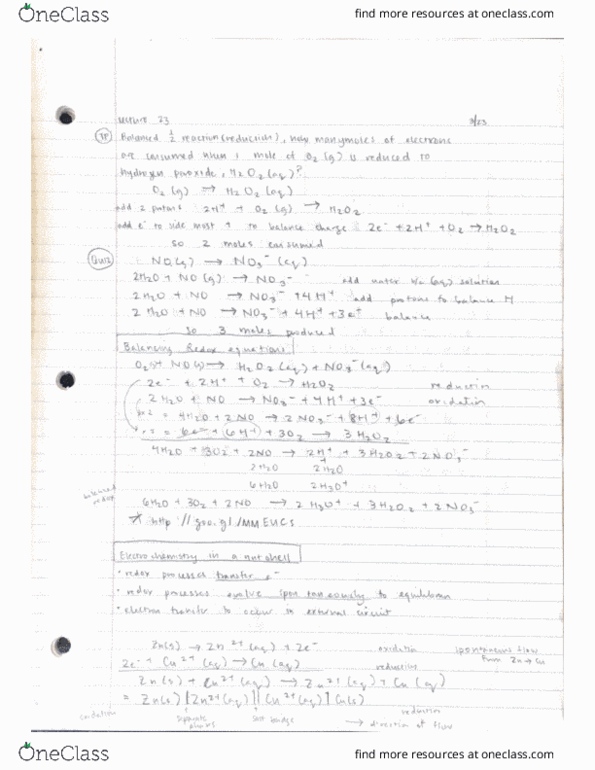 OneClass
find more resources at oneclass.com
Lecture 23
Balanced ½ reaction (reduction), how many moles of electrons
are consumed when 1 mole of O₂ (g) is reduced to
hydrogen peroxide, H₂O₂ (aq)?
O₂ (g) → H₂O₂ (aq)
add 2 protons 2H⁺ + O₂ (g) → H₂O₂
add e⁻ to side most + to balance charge 2e⁻ + 2H⁺ + O₂ → H₂O₂
so 2 moles consumed
Quiz NO(g) → NO₃⁻ (aq)
2H₂O + NO (g) → NO₃⁻ add water b/c (aq) solution
2H₂O + NO → NO₃⁻ + 4H⁺ add protons to balance H
2H₂O + NO → NO₃⁻ + 4H⁺ + 3e⁻ balance
so 3 moles produced
Balancing Redox equations
→ H₂O₂(aq) + NO₃⁻(aq)
2e⁻ + 2H⁺ + O₂ → H₂O₂ reduction
2H₂O + NO → NO₃⁻ + 4H⁺ + 3e⁻ oxidation
4H₂O + 2NO → 2NO₃⁻ + 8H⁺ + 6e⁻
6e⁻ + 6H⁺ + 3O₂ → 3H₂O₂
4H₂O + 3O₂ + 2NO → 2H⁺ + 3H₂O₂ + 2NO₃⁻
2H₂O 2H₂O
6H₂O 2H₃O⁺
balanced redox
6H₂O + 3O₂ + 2NO → 2H₃O⁺ + 3H₂O₂ + 2NO₃⁻
Electrochemistry in a nutshell
• redox processes transfer e⁻
• redox processes evolve spontaneously to equilibrium
• electron transfer to occur in external circuit
Zn(s) → Zn²⁺ (aq) + 2e⁻ oxidation spontaneous flow
2e⁻ + Cu²⁺ (aq) → Cu (aq) reduction from Zn → Cu
Zn(s) + Cu²⁺ (aq) → Zn²⁺ (aq) + Cu (aq)
= Zn(s) | Zn²⁺(aq) || Cu²⁺(aq) | Cu(s)
oxidation separate phases salt bridge reduction
→ direction of flow
OneClass
find more resources at oneclass.com